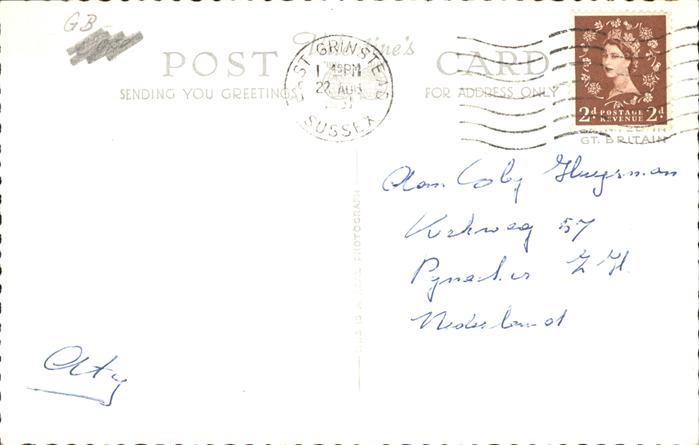 GB-
Valentine's
POST CARD
SENDING YOU GREETINGS
FOR ADDRESS ONLY
ST GRINSTEAD
1 45PM
22 AUG
SUSSEX
2d POSTAGE REVENUE 2d
PRINTED IN
GT. BRITAIN
THIS IS A REAL PHOTOGRAPH
Coby
Kerkweg 57
Z. H.
Nederland